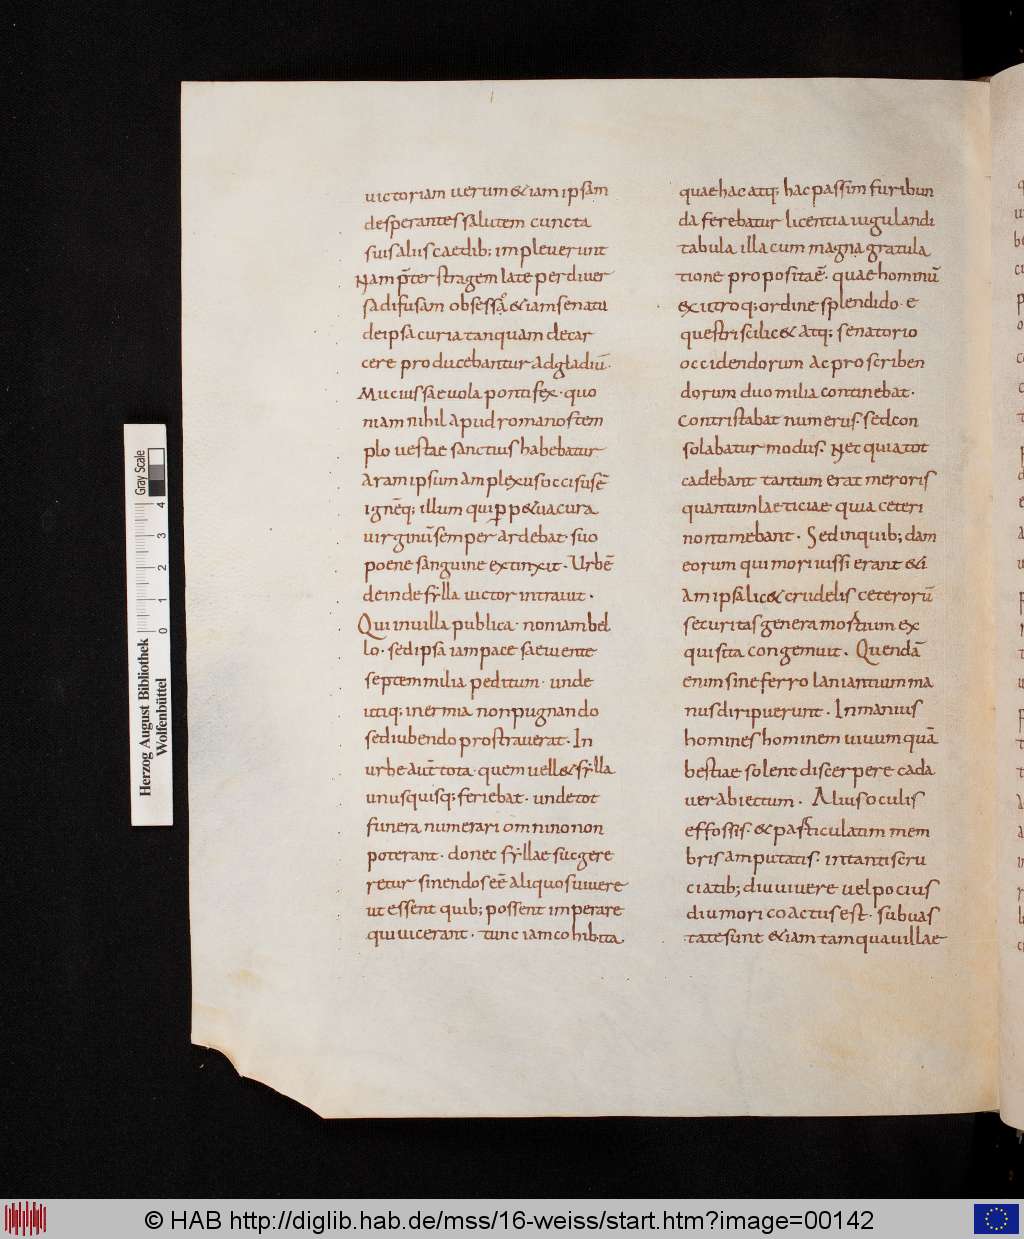 uictoriam uerum &iam ipsam
desperantes salutem cuncta
suis aliis caedib; impleuerunt
Nam p̄ter stragem late per diuer
sa difusam obsessa &iam senatu
de ipsa curia tanquam de car
cere producebantur ad gladiū·
Mucius saeuola pontifex· quo
niam nihil apud romanos tem
plo uestae sanctius habebatur
aram ipsum amplexus occisus ē
ignēq; illum qui p̱ p&ua cura
uirginū semper ardebat· suo
poene sanguine extinxit· Urbē
deinde sylla uictor intrauit·
Qui in uilla publica· non iam bel
lo· sed ipsa iam pace saeuiente
septem milia peditum· unde
utiq; inermia non pugnando
sed iubendo prostrauerat· In
urbe aut̄ tota· quem uell& sylla
unusquisq; feriebat· unde tot
funera numerari omnino non
poterant· donec syllae sugere
retur sinendos eē aliquos uiuere
ut essent quib; possent imperare
qui uicerant· tunc iam cohibita
quae hac atq; hac passim furibun
da ferebatur licentia iugulandi
tabula illa cum magna gratula
tione proposita ē· quae hominū
ex utroq; ordine splendido· e
questri scilic& atq; senatorio
occidendorum ac proscriben
dorum duo milia continebat·
Contristabat numerus· sed con
solabatur modus· Nec quia tot
cadebant tantum erat meroris
quantum laeticiae quia ceteri
non timebant· Sed in quib; dam
eorum qui mori iussi erant &i
am ipsa lic& crudelis ceterorū
securitas genera mortium ex
quisita congemuit· Quendā
enim sine ferro laniantium ma
nus diripuerunt· Inmanius
homines hominem uiuum quā
bestiae solent discerpere cada
uer abiectum· Alius oculis
effossis· & particulatim mem
bris amputatis· in tantis cru
ciatib; diu uiuere uel pocius
diu mori coactus est· subuas
tate sunt &iam tamqua uillae
Herzog August Bibliothek
Wolfenbüttel
Gray Scale
0 1 2 3 4
© HAB http://diglib.hab.de/mss/16-weiss/start.htm?image=00142